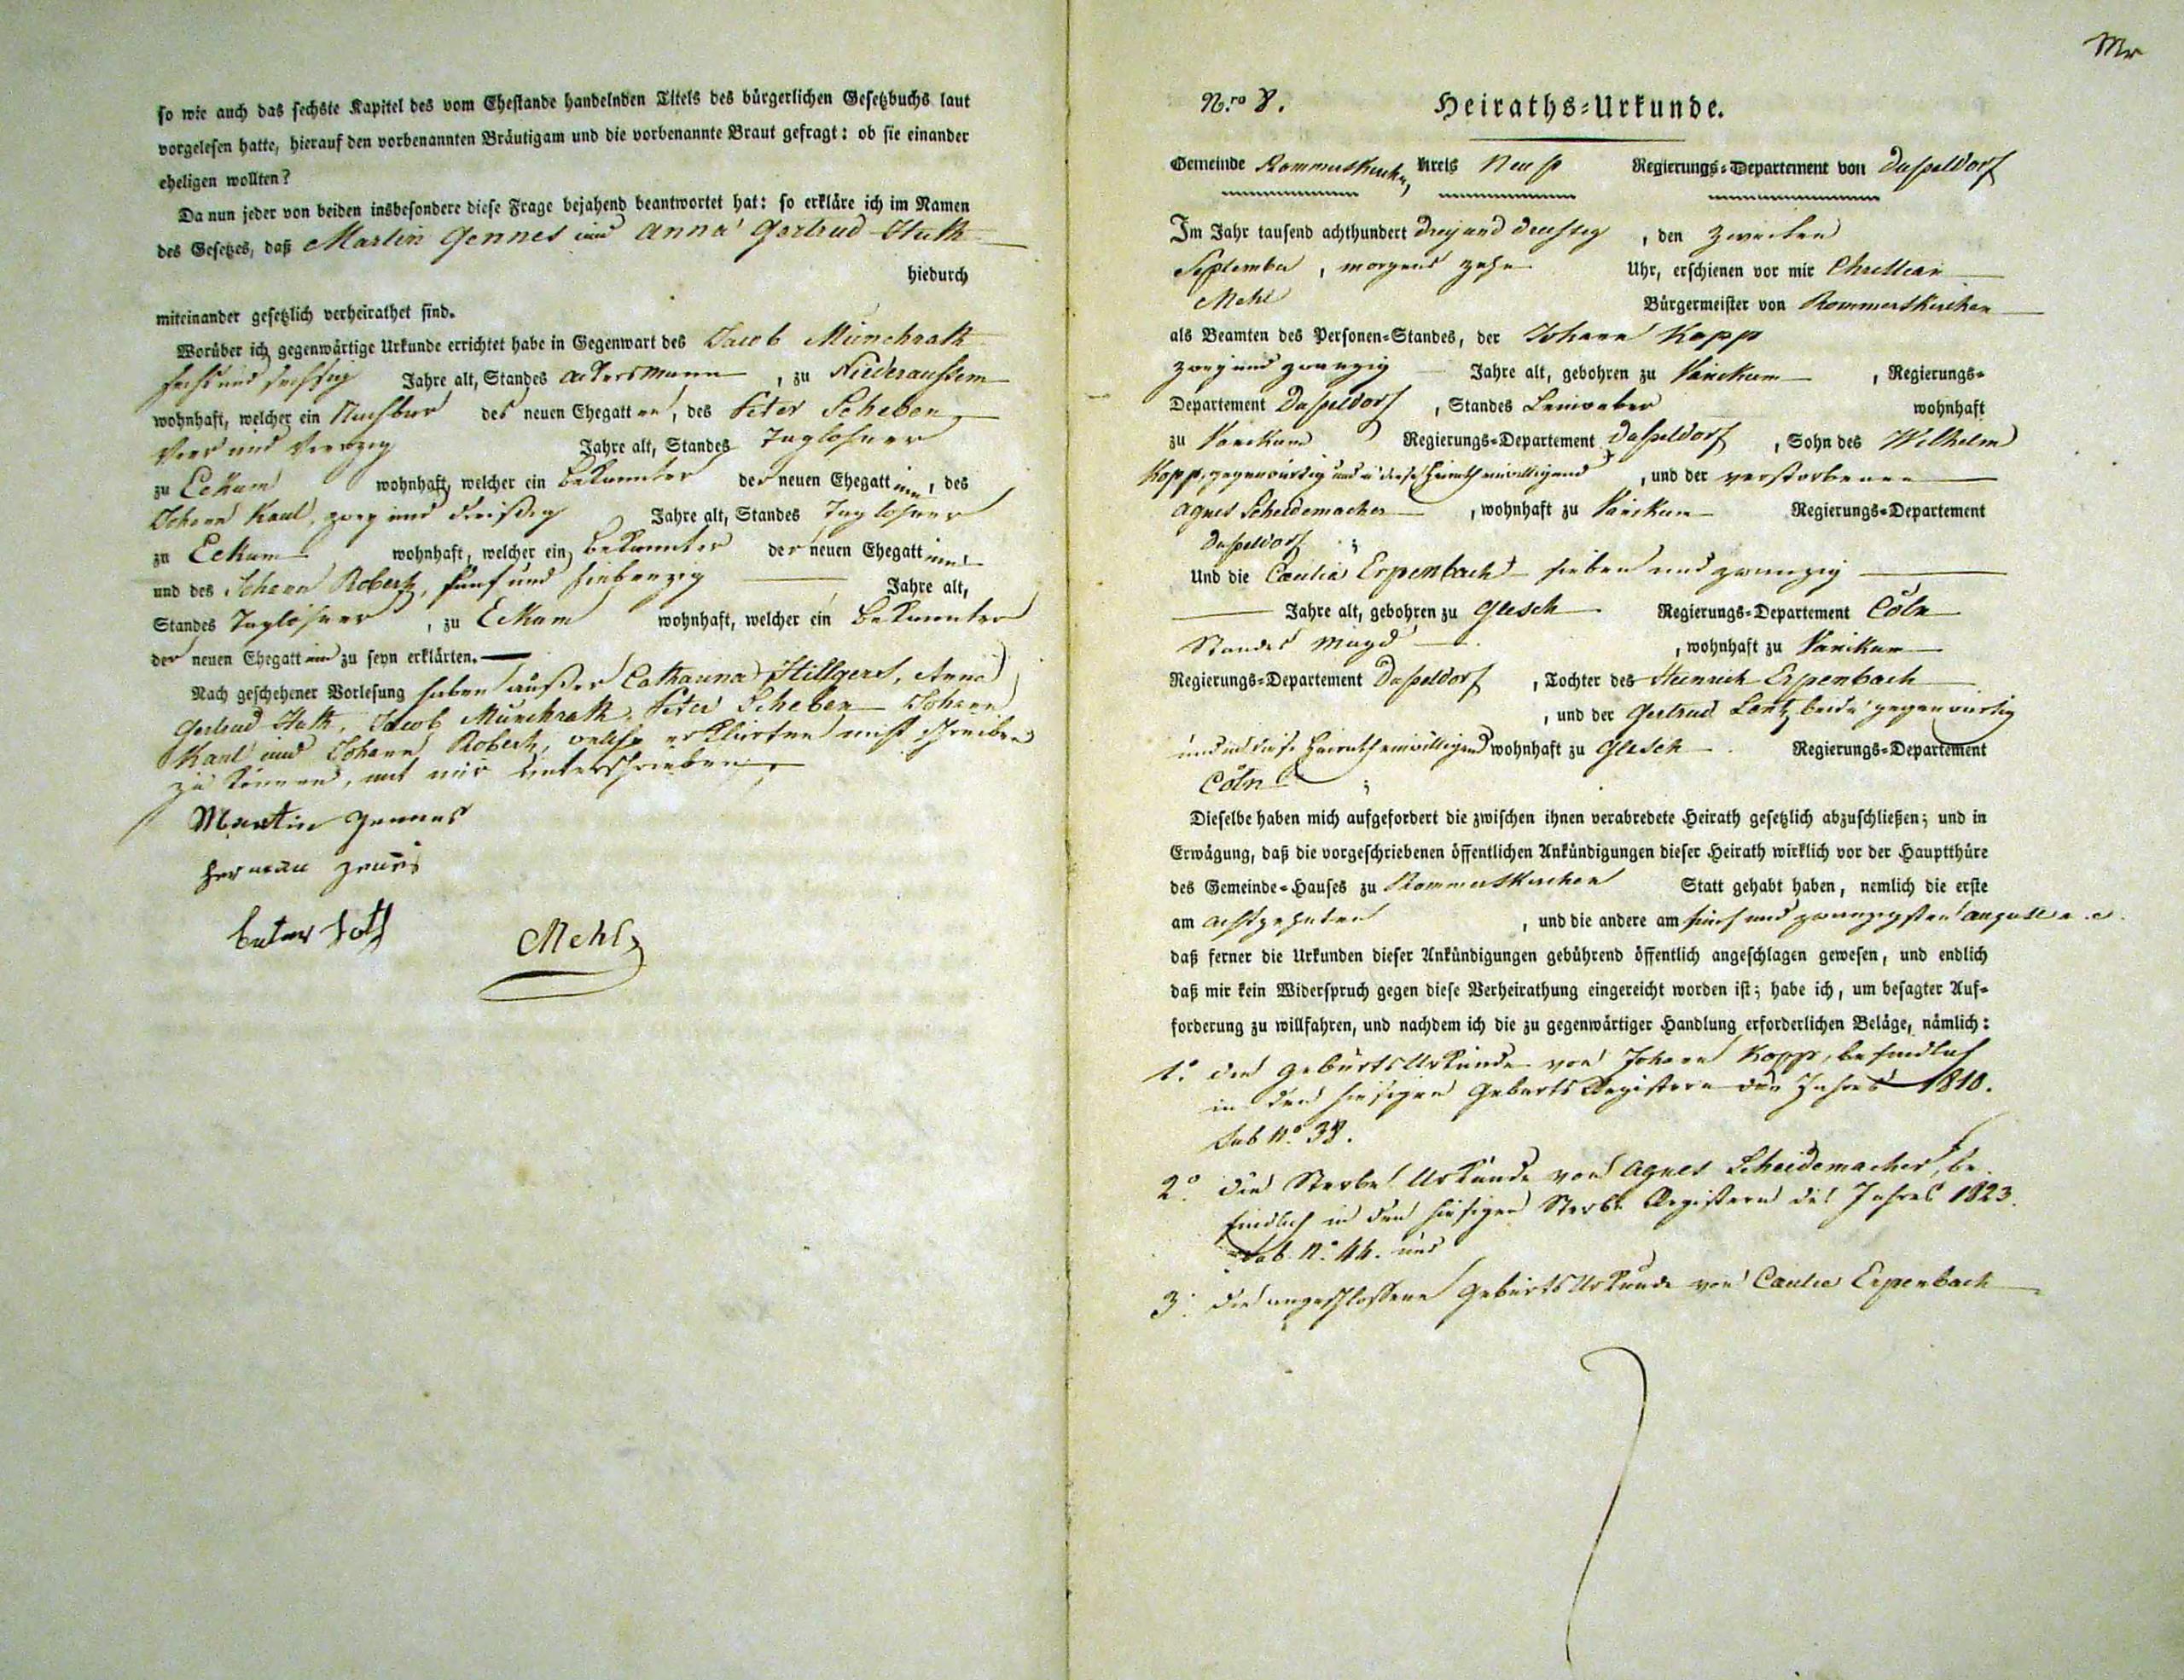 so wie auch das sechste Kapitel des vom Ehestande handelnden Titels des bürgerlichen Gesetzbuchs laut
vorgelesen hatte, hierauf den vorbenannten Bräutigam und die vorbenannte Braut gefragt: ob sie einander
eheligen wollten?
Da nun jeder von beiden insbesondere diese Frage bejahend beantwortet hat: so erkläre ich im Namen
des Gesetzes, daß Martin Gennes und Anna Gertrud Huth
hiedurch
miteinander gesetzlich verheirathet sind.
Worüber ich gegenwärtige Urkunde errichtet habe in Gegenwart des Jacob Münchrath
sechs und sechszig Jahre alt, Standes Ackersmann, zu Niederaussem
wohnhaft, welcher ein Nachbar des neuen Ehegatten, des Peter Scheben
vier und vierzig Jahre alt, Standes Taglöhner
zu Eckum wohnhaft, welcher ein Bekannter der neuen Ehegattinn, des
Johann Kaul, zwey und dreißig Jahre alt, Standes Taglöhner
zu Eckum wohnhaft, welcher ein Bekannter der neuen Ehegattinn
und des Johann Robertz, fünf und siebenzig Jahre alt,
Standes Taglöhner, zu Eckum wohnhaft, welcher ein Bekannter
der neuen Ehegattinn zu seyn erklärten.
Nach geschehener Vorlesung haben außer Catharina Hillgers, Anna
Gertrud Huth, Jacob Münchrath, Peter Scheben Johann
Kaul und Johann Robertz, welche erklärten nicht schreiben
zu können, mit mir unterschrieben
Martin Gennes
Herman
Mehl
Mr
N.ro 8. Heiraths-Urkunde.
Gemeinde Rommerskirchen, Kreis Neuß Regierungs-Departement von Dußeldorf
Im Jahr tausend achthundert drey und dreißig, den zweiten
September, morgens zehn Uhr, erschienen vor mir Christian
Mehl Bürgermeister von Rommerskirchen
als Beamten des Personen-Standes, der Johann Kopp
zwey und zwanzig Jahre alt, gebohren zu Vanikum, Regierungs-
Departement Dußeldorf, Standes Leinweber wohnhaft
zu Vanikum Regierungs-Departement Dußeldorf, Sohn des Wilhelm
Kopp, gegenwärtig und in diese Heirath einwilligend, und der verstorbenen
Agnes Scheidemacher, wohnhaft zu Vanikum Regierungs-Departement
Dußeldorf ;
Und die Caecilia Erpenbach sieben und zwanzig
Jahre alt, gebohren zu Glesch Regierungs-Departement Cöln
Standes Magd, wohnhaft zu Vanikum
Regierungs-Departement Dußeldorf, Tochter des Heinrich Erpenbach
, und der Gertrud Lentz beide gegenwärtig
und in diese Heirath einwilligend wohnhaft zu Glesch Regierungs-Departement
Cöln ;
Dieselbe haben mich aufgefordert die zwischen ihnen verabredete Heirath gesetzlich abzuschließen; und in
Erwägung, daß die vorgeschriebenen öffentlichen Ankündigungen dieser Heirath wirklich vor der Hauptthüre
des Gemeinde-Hauses zu Rommerskirchen Statt gehabt haben, nemlich die erste
am achtzehnten, und die andere am fünf und zwanzigsten August a. c.
daß ferner die Urkunden dieser Ankündigungen gebührend öffentlich angeschlagen gewesen, und endlich
daß mir kein Widerspruch gegen diese Verheirathung eingereicht worden ist; habe ich, um besagter Auf-
forderung zu willfahren, und nachdem ich die zu gegenwärtiger Handlung erforderlichen Beläge, nämlich:
1.° die Geburts Urkunde von Johann Kopp, befindlich
in den hiesigen Geburts Registern des Jahres 1810.
sub N.° 38.
2.° die Sterbe Urkunde von Agnes Scheidemacher, be-
findlich in den hiesigen Sterbe Registern des Jahres 1823.
sub. N.° 44. und
3. die angeschlossene Geburts Urkunde von Caecilia Erpenbach